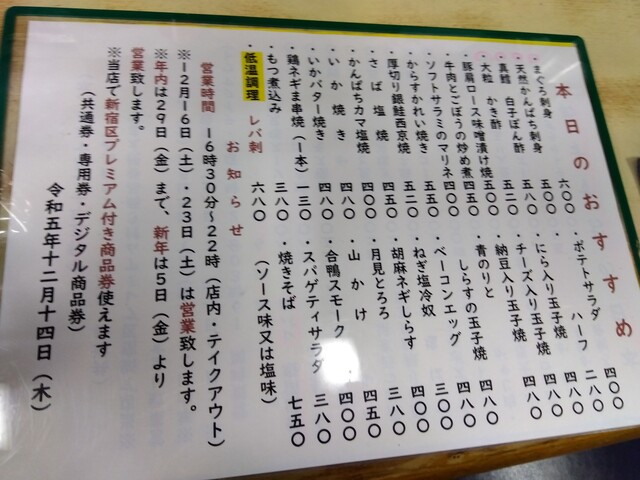 本日のおすすめ
・まぐろ刺身 六〇〇
・天然かんぱち刺身 五〇〇
・真鱈 白子ぽん酢 五八〇
・大粒 かき酢 五二〇
・豚肩ロース味噌漬け焼 五〇〇
・牛肉とごぼうの炒め煮 四五〇
・ソフトサラミのマリネ 四〇〇
・からすかれい焼き 五五〇
・厚切り銀鮭西京焼 五二〇
・さば塩焼 四五〇
・かんぱちカマ塩焼 四〇〇
・いか焼き 四八〇
・いかバター焼き 四八〇
・鶏ネギま串焼(1本) 一三〇
・もつ煮込み 三八〇
・低温調理 レバ刺 六八〇
・ポテトサラダ 四〇〇
ハーフ 二八〇
・にら入り玉子焼 四八〇
・チーズ入り玉子焼 四八〇
・納豆入り玉子焼 四八〇
・青のりと
しらすの玉子焼 四八〇
・ベーコンエッグ 四八〇
・ねぎ塩冷奴 三〇〇
・胡麻ネギしらす 四〇〇
・月見とろろ 三八〇
・山かけ 四五〇
・合鴨スモーク 四〇〇
・スパゲティサラダ 三八〇
・焼きそば 七五〇
(ソース味又は塩味)
お知らせ
営業時間 16時30分～22時(店内・テイクアウト)
※12月16日(土)・23日(土)は営業致します。
※年内は29日(金)まで、新年は5日(金)より
営業致します。
※当店で新宿区プレミアム付き商品券使えます
(共通券・専用券・デジタル商品券)
令和五年十二月十四日(木)